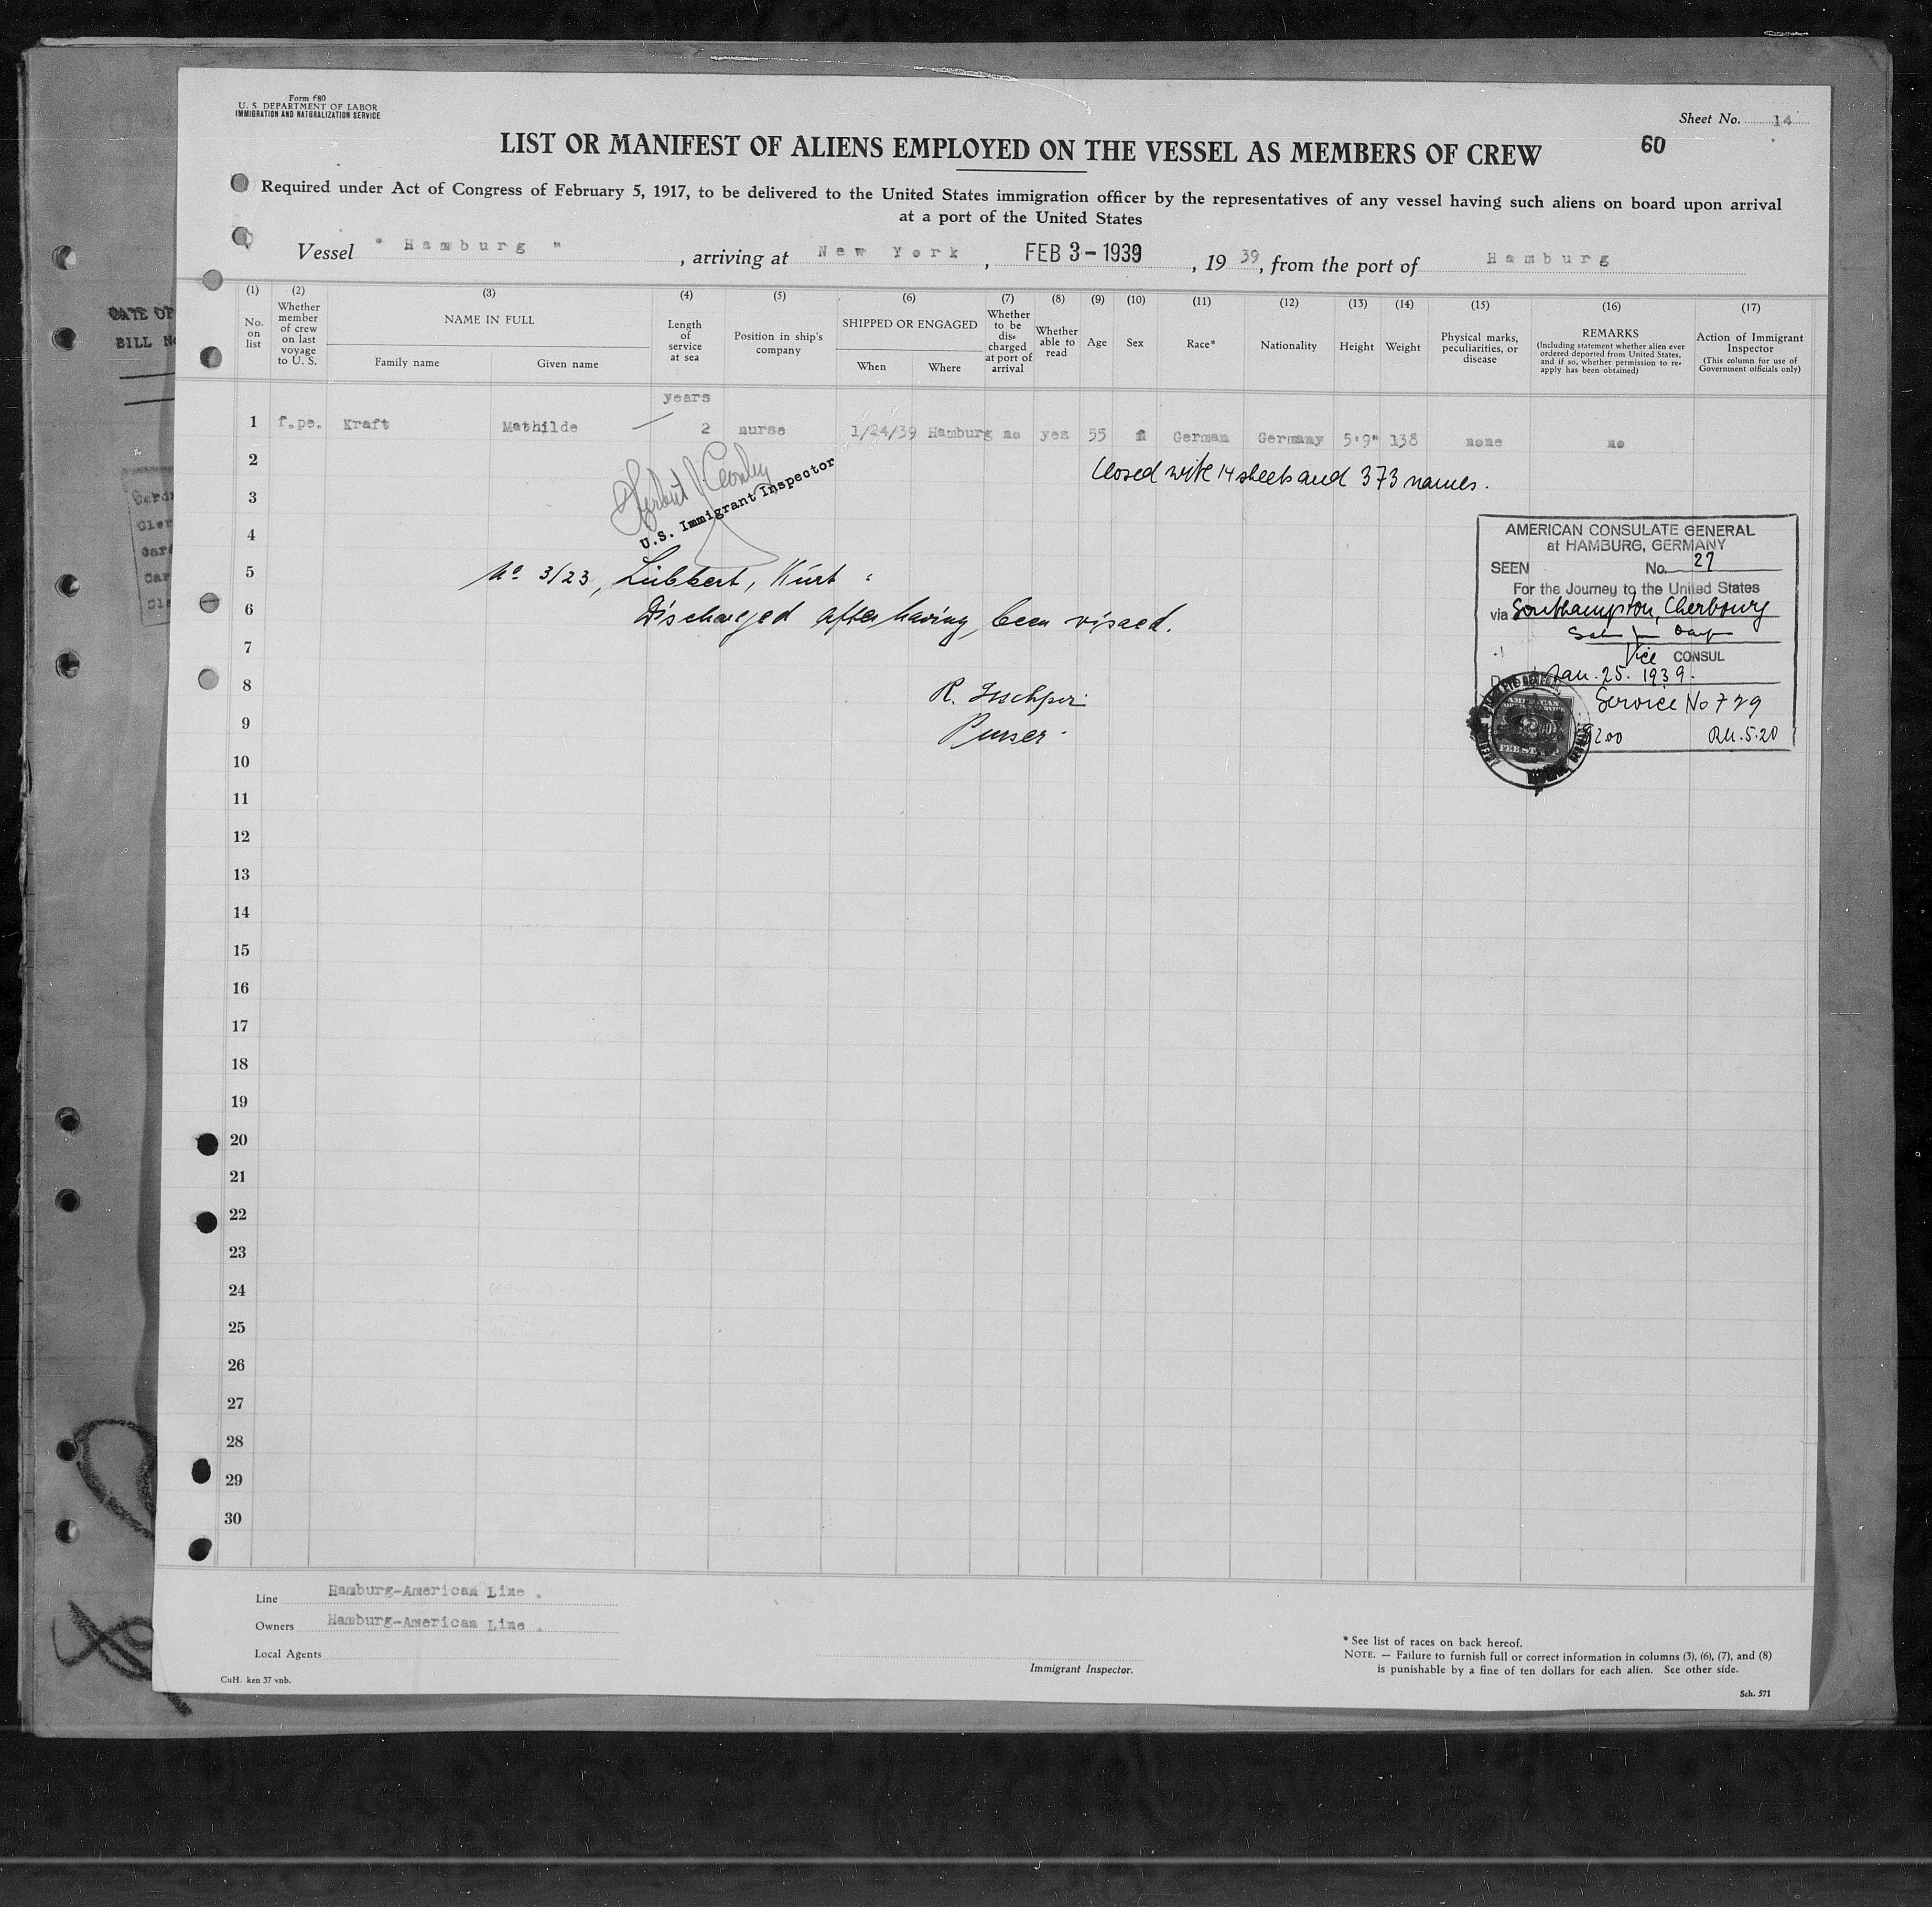 Form 680
U. S. DEPARTMENT OF LABOR
IMMIGRATION AND NATURALIZATION SERVICE
Sheet No. 14
60
LIST OR MANIFEST OF ALIENS EMPLOYED ON THE VESSEL AS MEMBERS OF CREW
Required under Act of Congress of February 5, 1917, to be delivered to the United States immigration officer by the representatives of any vessel having such aliens on board upon arrival
at a port of the United States
Vessel " Hamburg " , arriving at New York , FEB 3 - 1939 , 19 39, from the port of Hamburg
(1) (2) (3) (4) (5) (6) (7) (8) (9) (10) (11) (12) (13) (14) (15) (16) (17)
No. on list
Whether member of crew on last voyage to U. S.
NAME IN FULL
Family name
Given name
Length of service at sea
Position in ship's company
SHIPPED OR ENGAGED
When
Where
Whether to be discharged at port of arrival
Whether able to read
Age
Sex
Race*
Nationality
Height
Weight
Physical marks, peculiarities, or disease
REMARKS
(Including statement whether alien ever ordered deported from United States, and if so, whether permission to reapply has been obtained)
Action of Immigrant Inspector
(This column for use of Government officials only)
years
1 f.pe. Kraft Mathilde 2 nurse 1/24/39 Hamburg no yes 55 German Germany 5'9" 138 none no
2
Closed with 14 sheets and 373 names.
3
U.S. Immigrant Inspector
4
5
No 3/23, Lübbert, Kurt :
6
Discharged after having been visaed.
7
8
R.
9
Purser.
10
11
12
13
14
15
16
17
18
19
20
21
22
23
24
25
26
27
28
29
30
AMERICAN CONSULATE GENERAL
at HAMBURG, GERMANY
SEEN No. 27
For the Journey to the United States
via Southampton, Cherbourg
Vice CONSUL
Jan. 25. 1939.
Service No 729
RM. 5.20
DATE OF
BILL
Line Hamburg-American Line .
Owners Hamburg-American Line .
Local Agents
Immigrant Inspector.
* See list of races on back hereof.
NOTE. — Failure to furnish full or correct information in columns (3), (6), (7), and (8)
is punishable by a fine of ten dollars for each alien. See other side.
CuH. ken 37 vnb.
Sch. 571